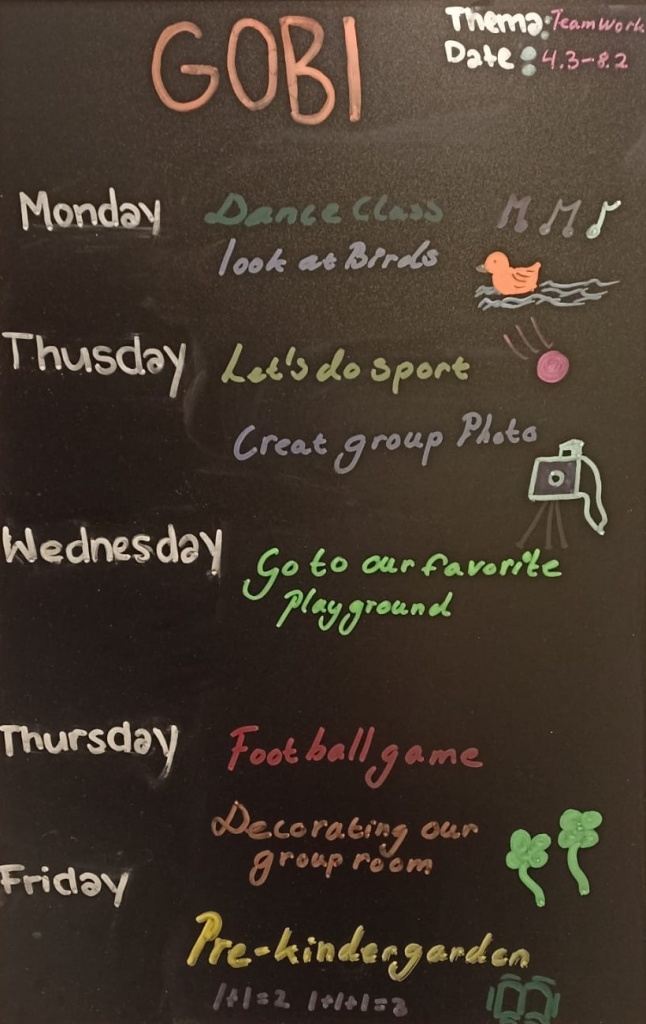 GOBI
Thema: Teamwork
Date: 4.3-8.2
Monday Dance Class
look at Birds
Thusday Let's do sport
Creat group Photo
Wednesday Go to our favorite
playground
Thursday Football game
Decorating our
group room
Friday
Pre-kindergarden
1+1=2 1+1+1=3